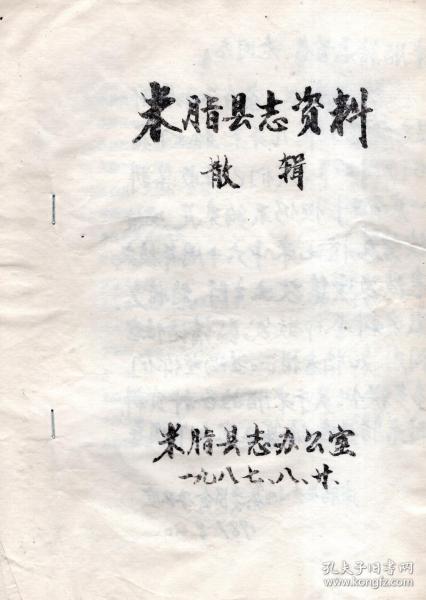 米脂县志资料
散 辑
米脂县志办公室
一九八七、八、廿、
孔夫子旧书网
www.kongfz.com